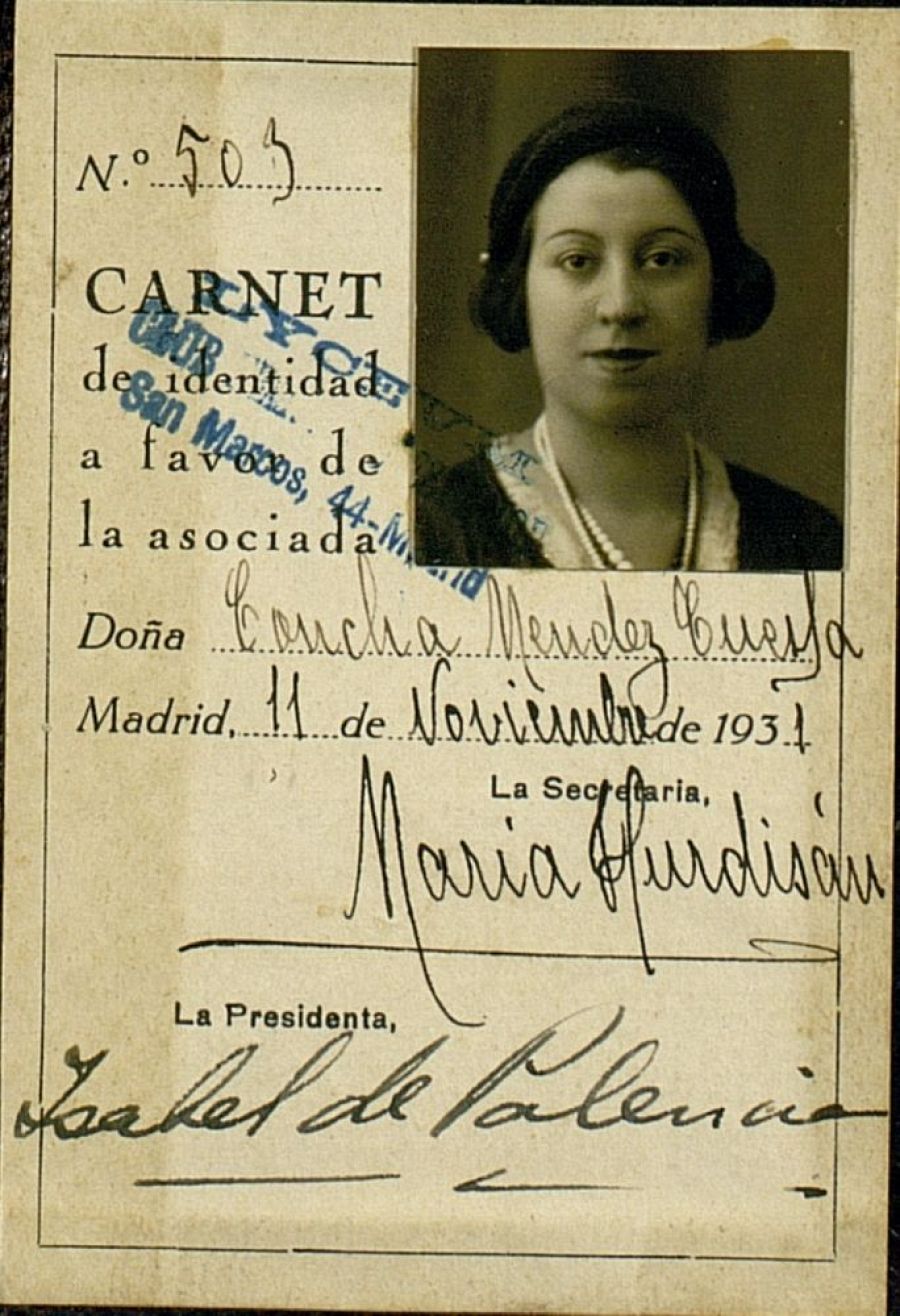 N.º 503
CARNET
de identidad
a favor de
la asociada
LYCEUM
CLUB
San Marcos, 44-Madrid
Doña Concha Méndez Cuesta
Madrid, 11 de Noviembre de 1931
La Secretaria,
Maria Hurdisán
La Presidenta,
Isabel de Palencia